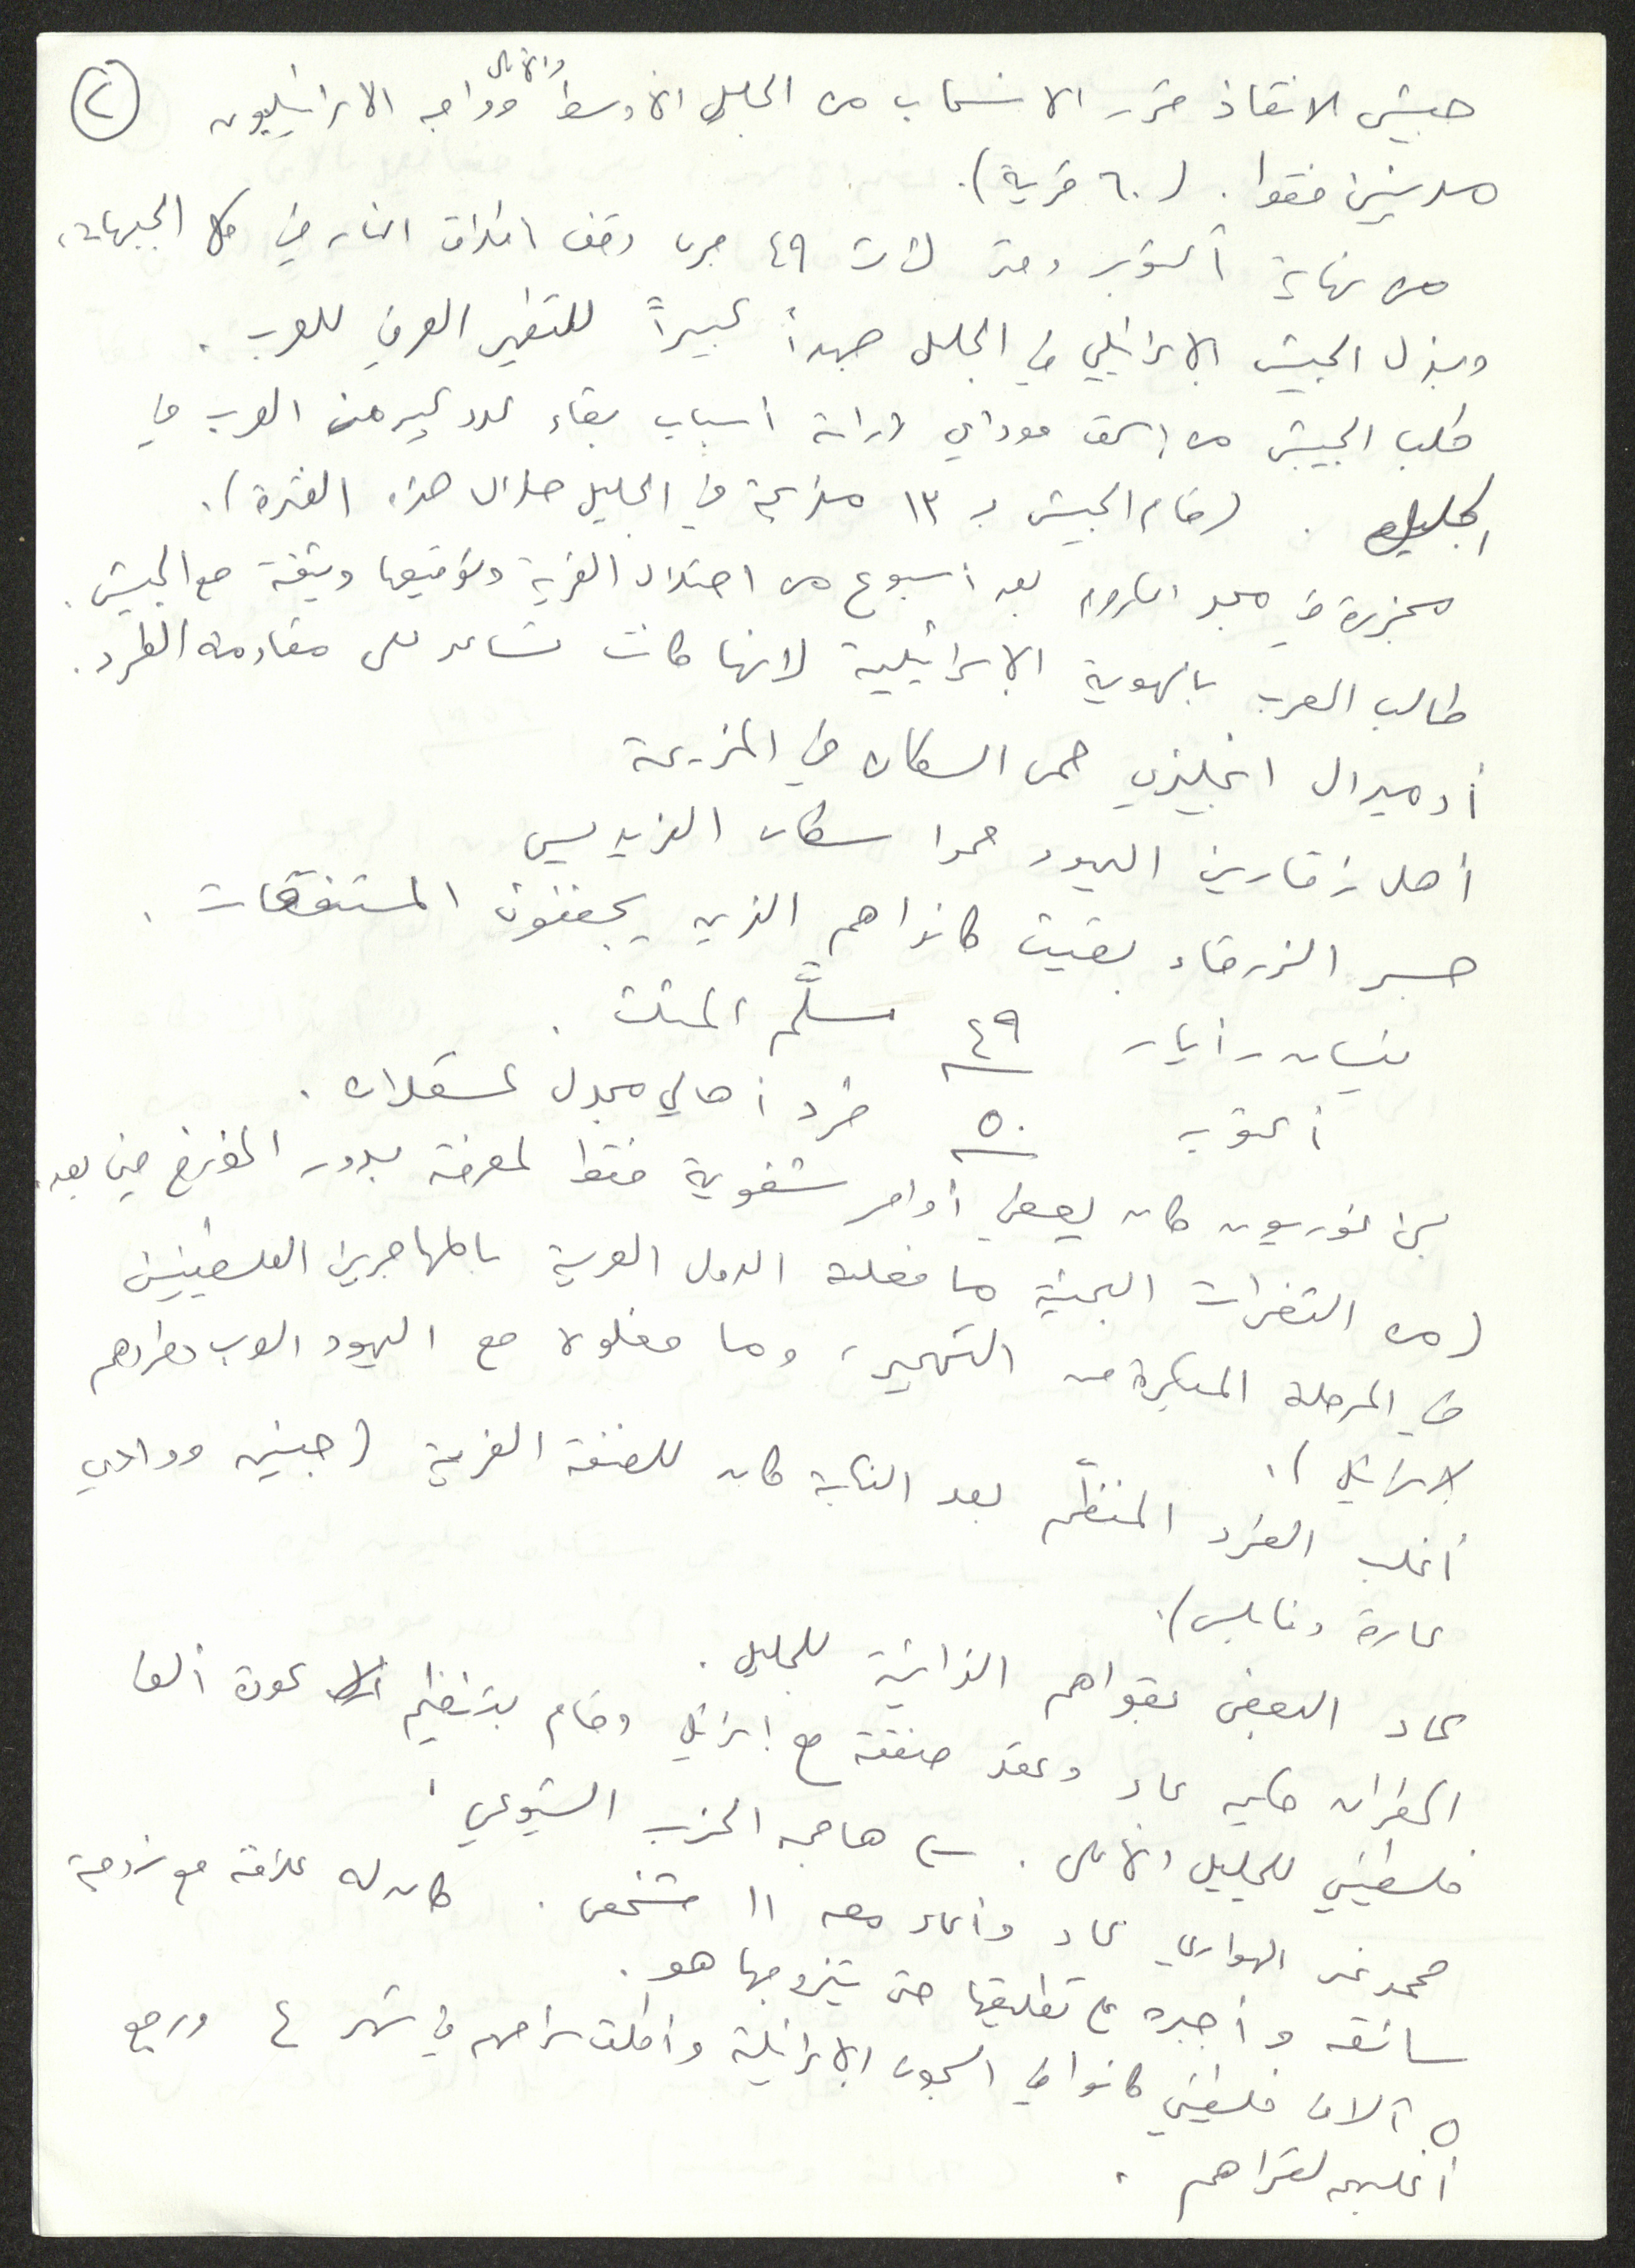 ٢
جيش الانقاذ قرر الانسحاب من الجليل الأوسط والأعلى وواجه الاسرائيليون
مدنيين فقط. (٦٠ قرية).
من نهاية أكتوبر وحتى آذار ٤٩ جرى وقف اطلاق النار في كل الجبهات،
وبذل الجيش الاسرائيلي في الجليل جهداً كبيراً للتطهير العرقي للعرب.
طلب الجيش من اسحق موداي دراسة أسباب بقاء عدد كبير من العرب في
الجليل. (قام الجيش بـ ١٣ مذبحة في الجليل خلال هذه الفترة).
مجزرة في مجد الكروم بعد أسبوع من احتلال القرية وتوقيعها وثيقة مع الجيش.
طالب العرب بالهوية الاسرائيلية لأنها كانت تساعد على مقاومة الطرد.
أدميرال انجليزي حمى السكان في المزرعة
أهل زخارين اليهود حموا سكان الفريديس
جسر الزرقاء بقيت كانوا هم الذين يجففون المستنقعات.
نيسان - أيار ٤٩ تسلّم المثلث.
أكتوبر ٥٠ طرد أهالي مجدل عسقلان.
بن غوريون كان يعطي أوامر شفوية فقط لمعرفته بدور المؤرخ فيما بعد.
(من الثغرات البحثية ما فعلته الدول العربية بالمهاجرين الفلسطينيين
في المرحلة المبكرة من التهجير، وما فعلوه مع اليهود العرب وطردهم
لاسرائيل).
أغلب الطرد المنظّم بعد النكبة كان للضفة الغربية (جنين ووادي
عارة ونابلس).
عاد البعض بقواهم الذاتية للجليل.
المطران حكيم عاد وعقد صفقة مع اسرائيل وقام بتنظيم عودة ألفا
فلسطيني للجليل الأعلى. هاجمه الحزب الشيوعي.
محمد نمر الهواري عاد وأعاد معه ١١ شخص. كان له علاقة مع زوجة
سائقه وأجبره على تطليقها حتى يتزوجها هو.
٥ آلاف فلسطيني كانوا في السجون الاسرائيلية وأطلق سراحهم في شهر ٤ ورجع
أغلبهم لقراهم.